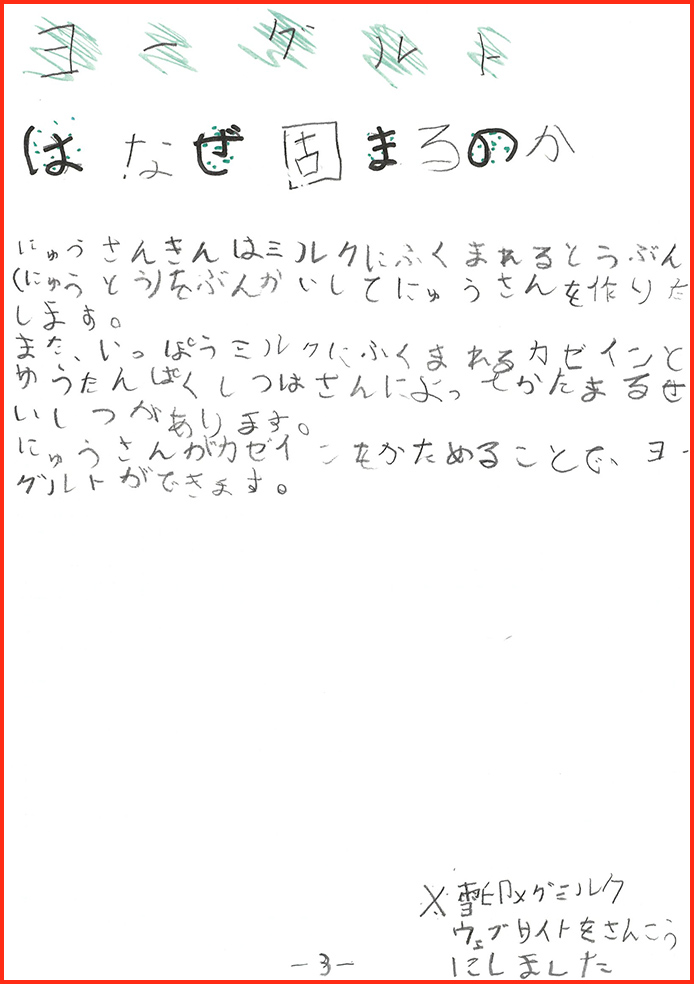 ヨーグルト
はなぜ固まるのか
にゅうさんきんはミルクにふくまれるとうぶん
(にゅうとう)をぶんかいしてにゅうさんを作りだ
します。
また、いっぽうミルクにふくまれるカゼインと
ゆうたんぱくしつはさんによってかたまるせ
いしつがあります。
にゅうさんがカゼインをかためることで、ヨー
グルトができます。
※雪印メグミルク
ウェブサイトをさんこう
にしました
-3-